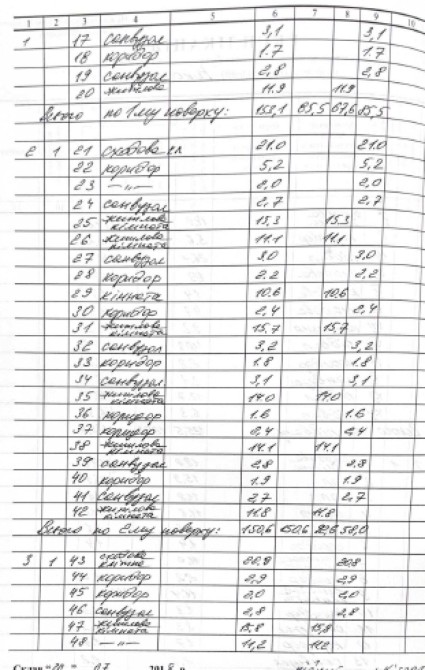 1 2 3 4 5 6 7 8 9 10
1 17 санвузол 3,1 3,1
18 коридор 1.7 1.7
19 санвузол 2,8 2,8
20 житлова 11.9 11.9
Всього по 1му поверху: 153,1 65,5 67,6 85,5
2 1 21 сходова кл 21.0 21.0
22 коридор 5,2 5,2
23 —"— 2,0 2,0
24 санвузол 2,7 2,7
25 житлова кімната 15,3 15.3
26 житлова кімната 11.1 11.1
27 санвузол 3.0 3.0
28 коридор 2,2 2,2
29 кімната 10,6 10,6
30 коридор 2,4 2,4
31 житлова кімната 15,7 15,7
32 санвузол 3,2 3,2
33 коридор 1.8 1.8
34 санвузол 3,1 3,1
35 житлова кімната 14.0 14.0
36 коридор 1.6 1.6
37 коридор 2,4 2,4
38 житлова кімната 14.1 14.1
39 санвузол 2,8 2,8
40 коридор 1.9 1.9
41 санвузол 2,7 2,7
42 житлова кімната 11.8 11.8
Всього по 2му поверху: 150,6 58,0
3 1 43 сходова клітка 20,8 20,8
44 коридор 2,9 2,9
45 коридор 2,0 2,0
46 санвузол 2,8 2,8
47 житлова кімната 15,8 15,8
48 —"— 11,2 11,2